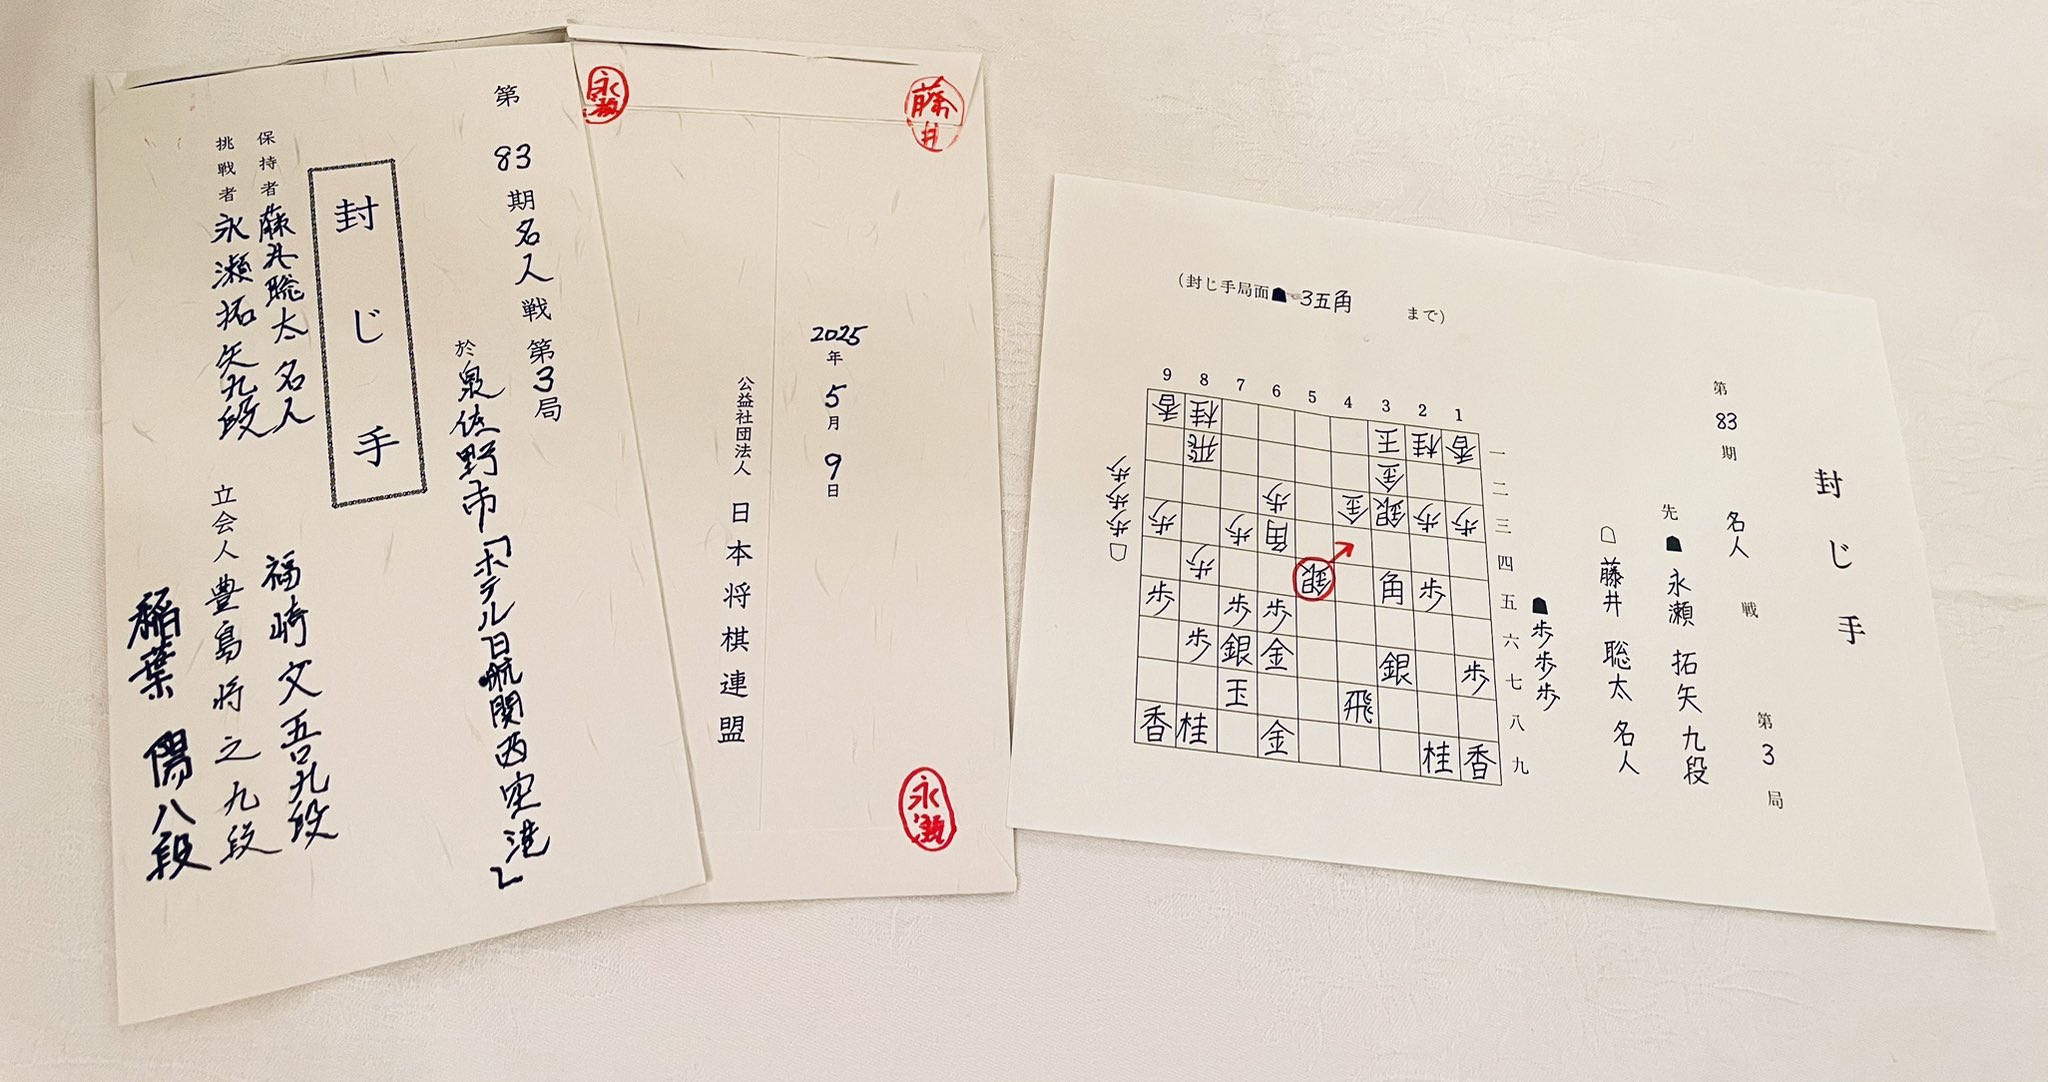 第83期名人戦第3局
於泉佐野市「ホテル日航関西空港」
封じ手
保持者藤井聡太名人
挑戦者永瀬拓矢九段
立会人豊島将之九段
福崎文吾九段
稲葉陽八段
永瀬
藤井
2025年5月9日
公益社団法人 日本将棋連盟
永瀬
封じ手
第83期名人戦第3局
先☗永瀬拓矢九段
☖藤井聡太名人
(封じ手局面☗3五角まで)
9 8 7 6 5 4 3 2 1
香 桂 王 桂 香 一
飛 金 二
歩 金 銀 歩 歩 三
歩 歩 角 四
歩 銀 角 歩 五
歩 歩 歩 六
歩 銀 金 銀 歩 七
玉 飛 八
香 桂 金 桂 香 九
☗歩歩歩
☖歩歩歩歩